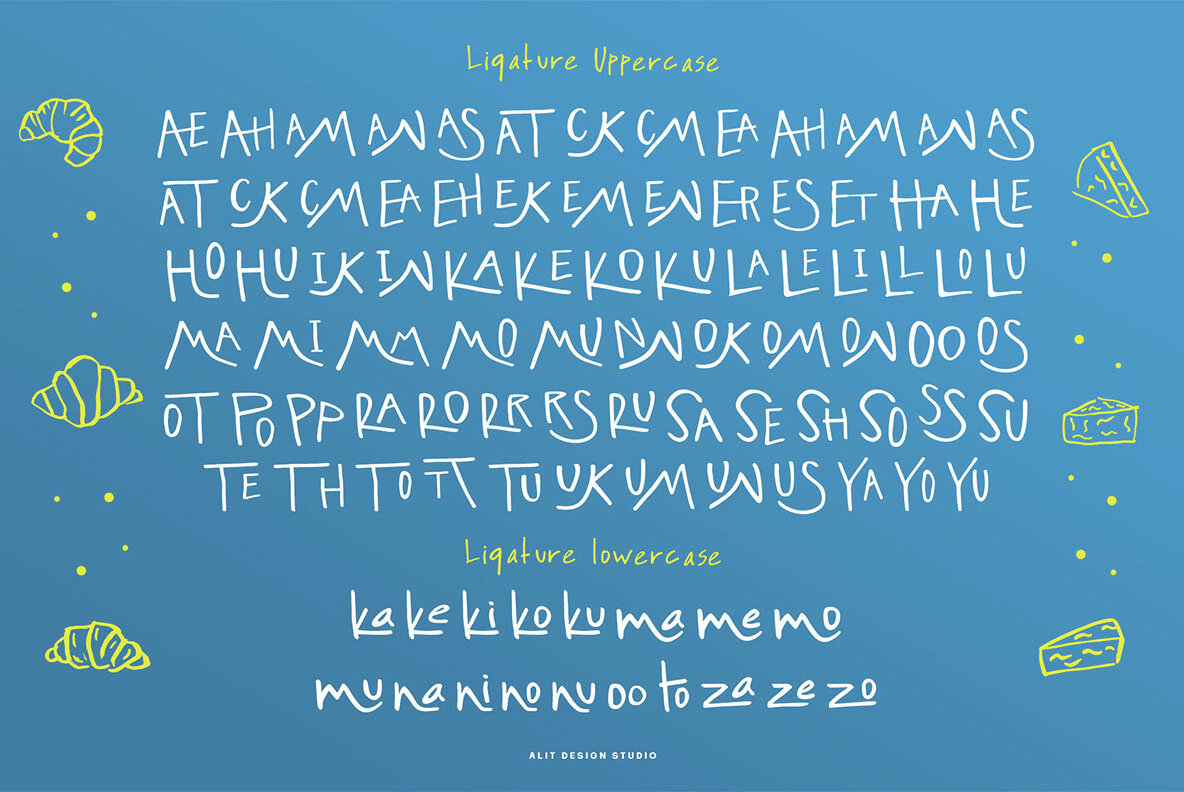 Ligature Uppercase
AE AH AM AN AS AT CK CM EA AH AM AN AS
AT CK CM EA EH EK EM EN ER ES ET HA HE
HO HU IK IN KA KE KO KU LA LE LI LL LO LU
MA MI MM MO MU NN OK OM ON OO OS
OT PO PP RA RO RR RS RU SA SE SH SO SS SU
TE TH TO TT TU UK UM UN US YA YO YU
Ligature lowercase
ka ke ki ko ku ma me mo
mu na ni no nu oo to za ze zo
ALIT DESIGN STUDIO